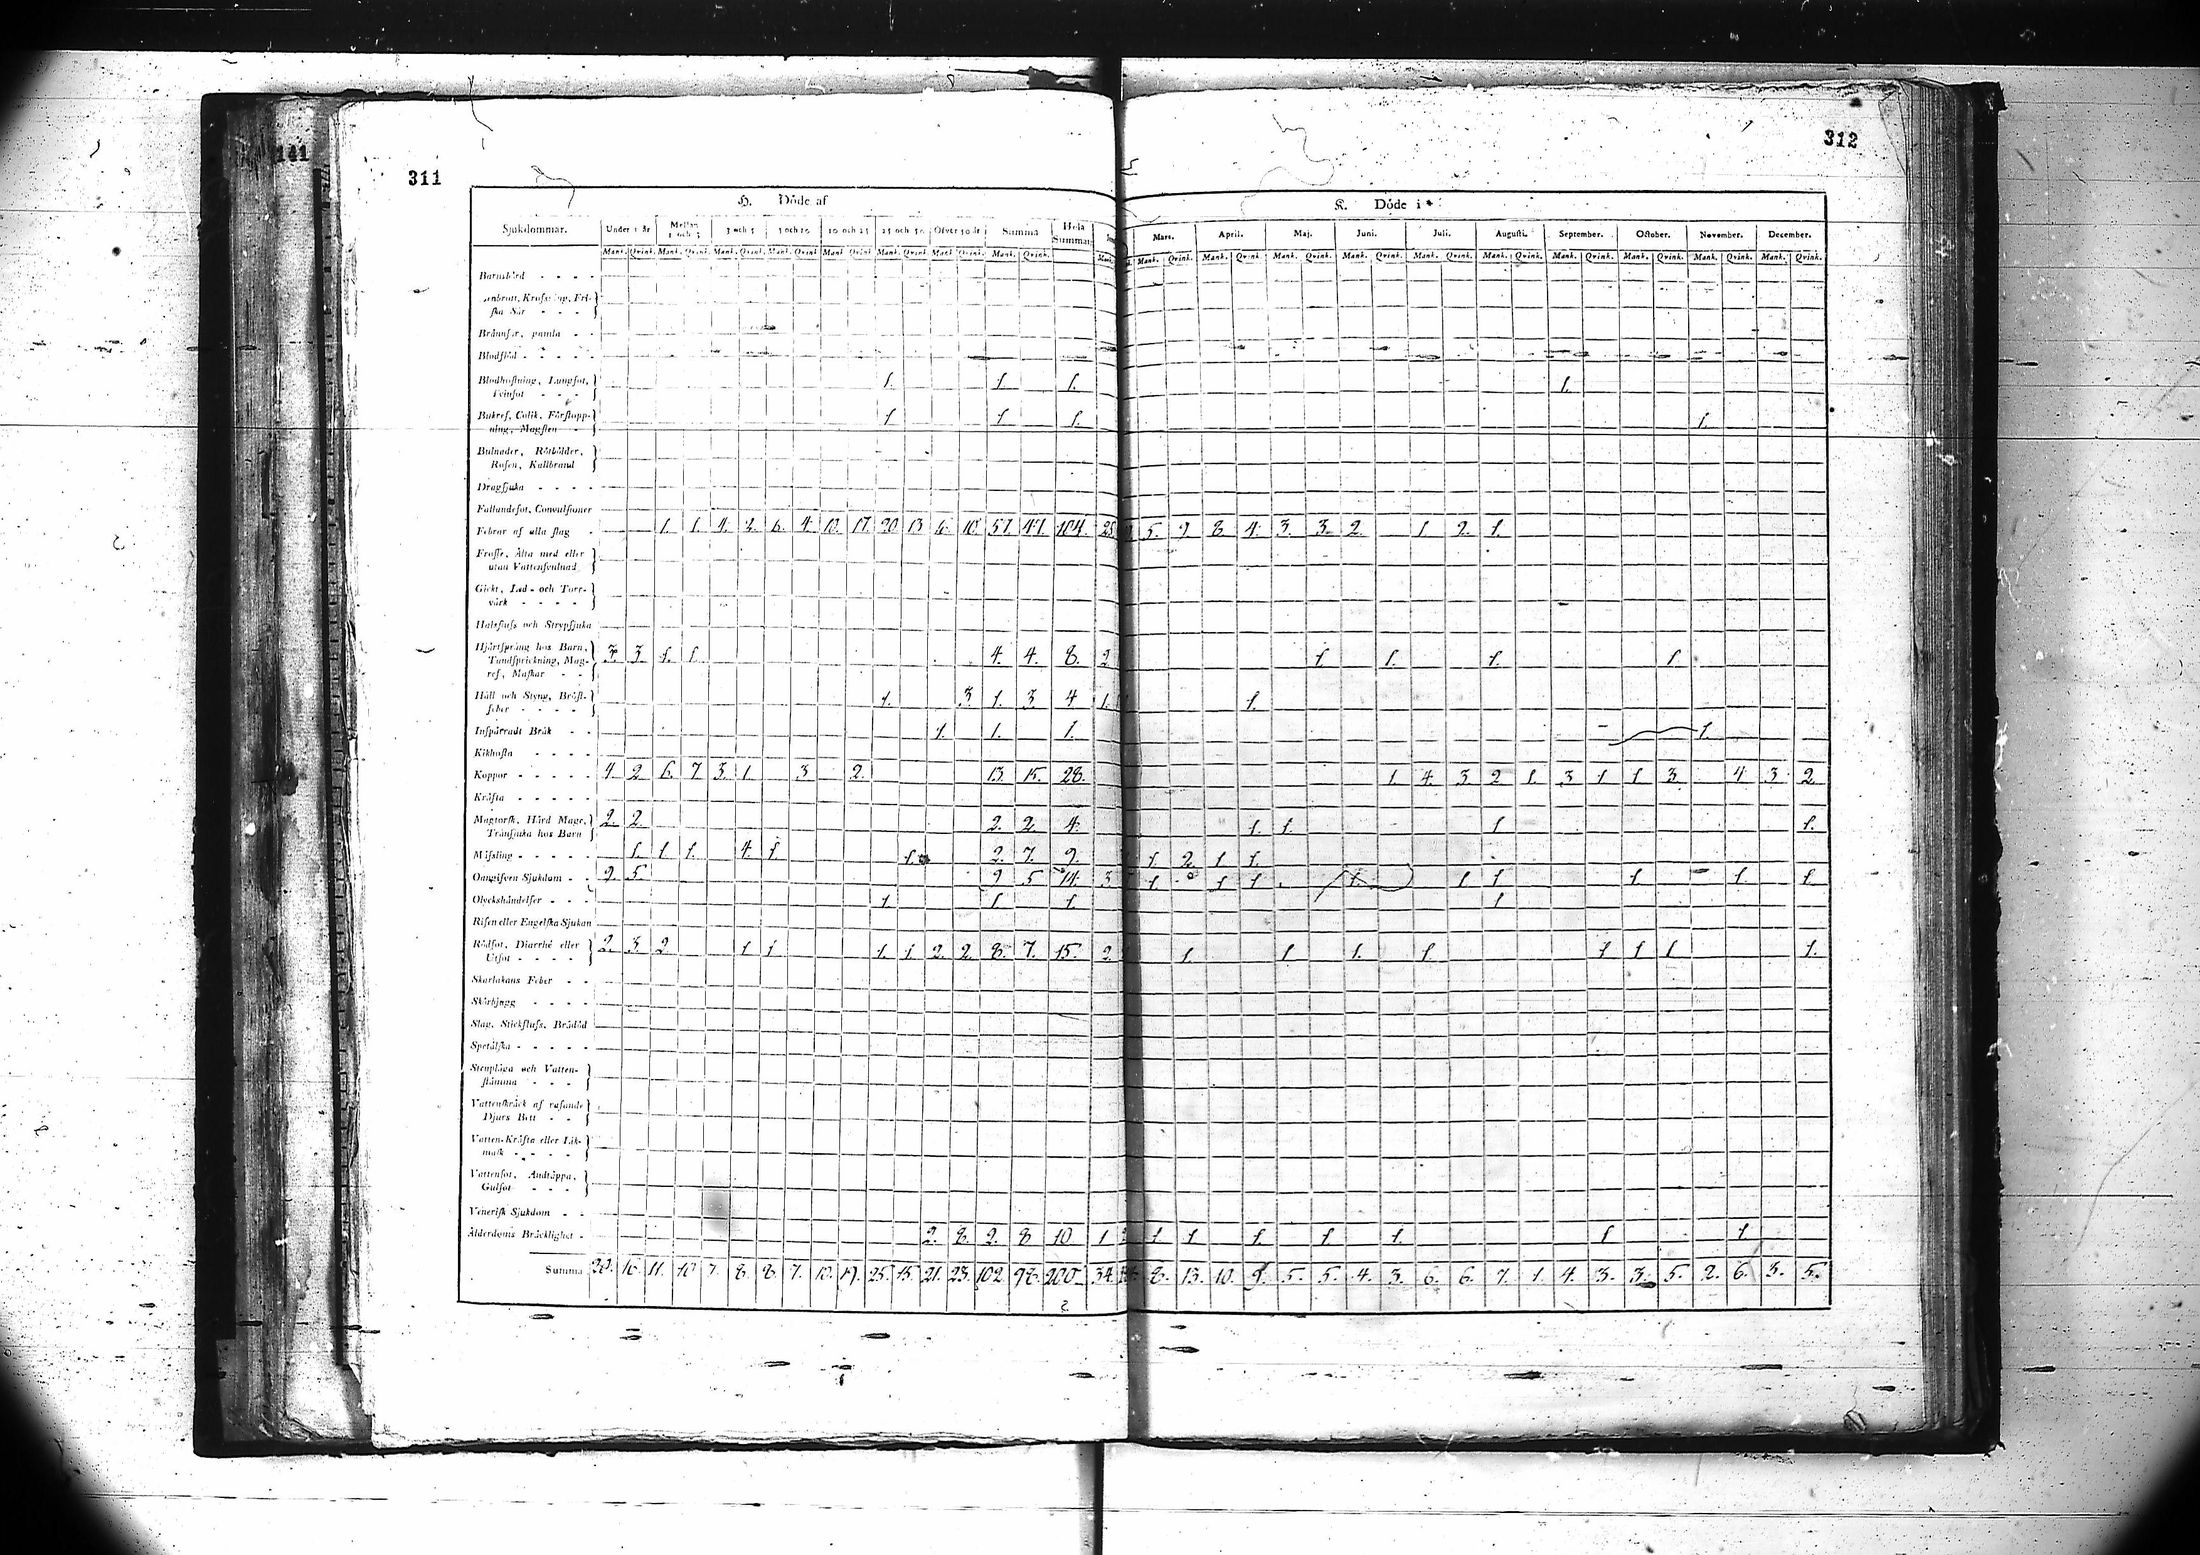 141
311
312
H. Döde af
K. Döde i
Sjukdommar. Under 1 år Mellan 1 och 3 3 och 5 5 och 10 10 och 25 25 och 50 Öfver 50 år Summa Hela Summan
Mars. April. Maj. Juni. Juli. Augusti. September. October. November. December.
Mank. Qvink. Mank. Qvink. Mank. Qvink. Mank. Qvink. Mank. Qvink. Mank. Qvink. Mank. Qvink. Mank. Qvink. Mank.
Mank. Qvink. Mank. Qvink. Mank. Qvink. Mank. Qvink. Mank. Qvink. Mank. Qvink. Mank. Qvink. Mank. Qvink. Mank. Qvink. Mank. Qvink.
Barnsbörd
Fri-
ska Sår
Brännsår,
Blodflöd
Blodhostning, Lungsot, 1. 1. 1. 1.
Tvinsot
Bukref, Colik, Förstopp- 1. 1. 1. 1.
ning, Magsten
Bulnader, Rötbölder,
Rosen, Kallbrand
Dragsjuka
Fallandesot, Convulsioner
Febrar af alla slag 1. 1. 4. 2. 6. 4. 10. 17. 20 13 6. 10. 57. 47. 104. 5. 9 8. 4. 3. 3. 2. 1 2. 1.
Frossa, Älta med eller
utan Vattensvulnad
Gickt, Led- och Torr-
värk
Halsfluss och Strypsjuka
Hjärtspräng hos Barn, 3. 3. 1. 1. 4. 4. 8. 2 1. 1. 1. 1.
Tandsprickning, Mag-
ref, Maskar
Håll och Styng, Bröst- 1. 3 1. 3. 4 1. 1.
feber
Inspärradt Bråk 1. 1. 1. 1.
Kikhosta
Koppor 4. 2 6. 7. 3. 1 3 2. 13. 15. 28. 1 4. 3 2 1. 3 1 1 3. 4 3. 2.
Kräfta
Magtorsk, Hård Mage, 2. 2 2. 2. 4. 1. 1. 1 1.
Trånsjuka hos Barn
Mässling 1. 1 1. 4. 1 1. 2. 7. 9. 1. 2 1 1.
Oangifven Sjukdom 9. 5. 9 5 14. 3 1 1 1 1. 1 1 1. 1. 1.
Olyckshändelser 1. 1. 1. 1
Risen eller Engelska Sjukan
Rödsot, Diarrhé eller 2. 3. 2 1 1 1. 1. 2. 2. 8. 7. 15. 2. 1. 1. 1. 1. 1 1. 1 1.
Utsot
Skarlakans Feber
Skörbjugg
Slag, Stickfluss, Brådöd
Spetälska
Stenplåga och Vatten-
stämma
Vattenskräck af rasande
Djurs Bett
Vatten-Kräfta eller Lák-
mask
Vattensot, Andtäppa,
Gulsot
Venerisk Sjukdom
Ålderdoms Bräcklighet 2. 8. 2. 8 10 1 1 1. 1. 1. 1. 1 1
Summa 20. 16. 11. 10 7. 8. 8. 7. 10. 19. 25. 15. 21. 23. 102. 98. 200 34. 8. 13. 10. 9. 5. 5. 4. 3. 6. 6. 7. 1. 4. 3. 3. 5. 2. 6. 3. 5.